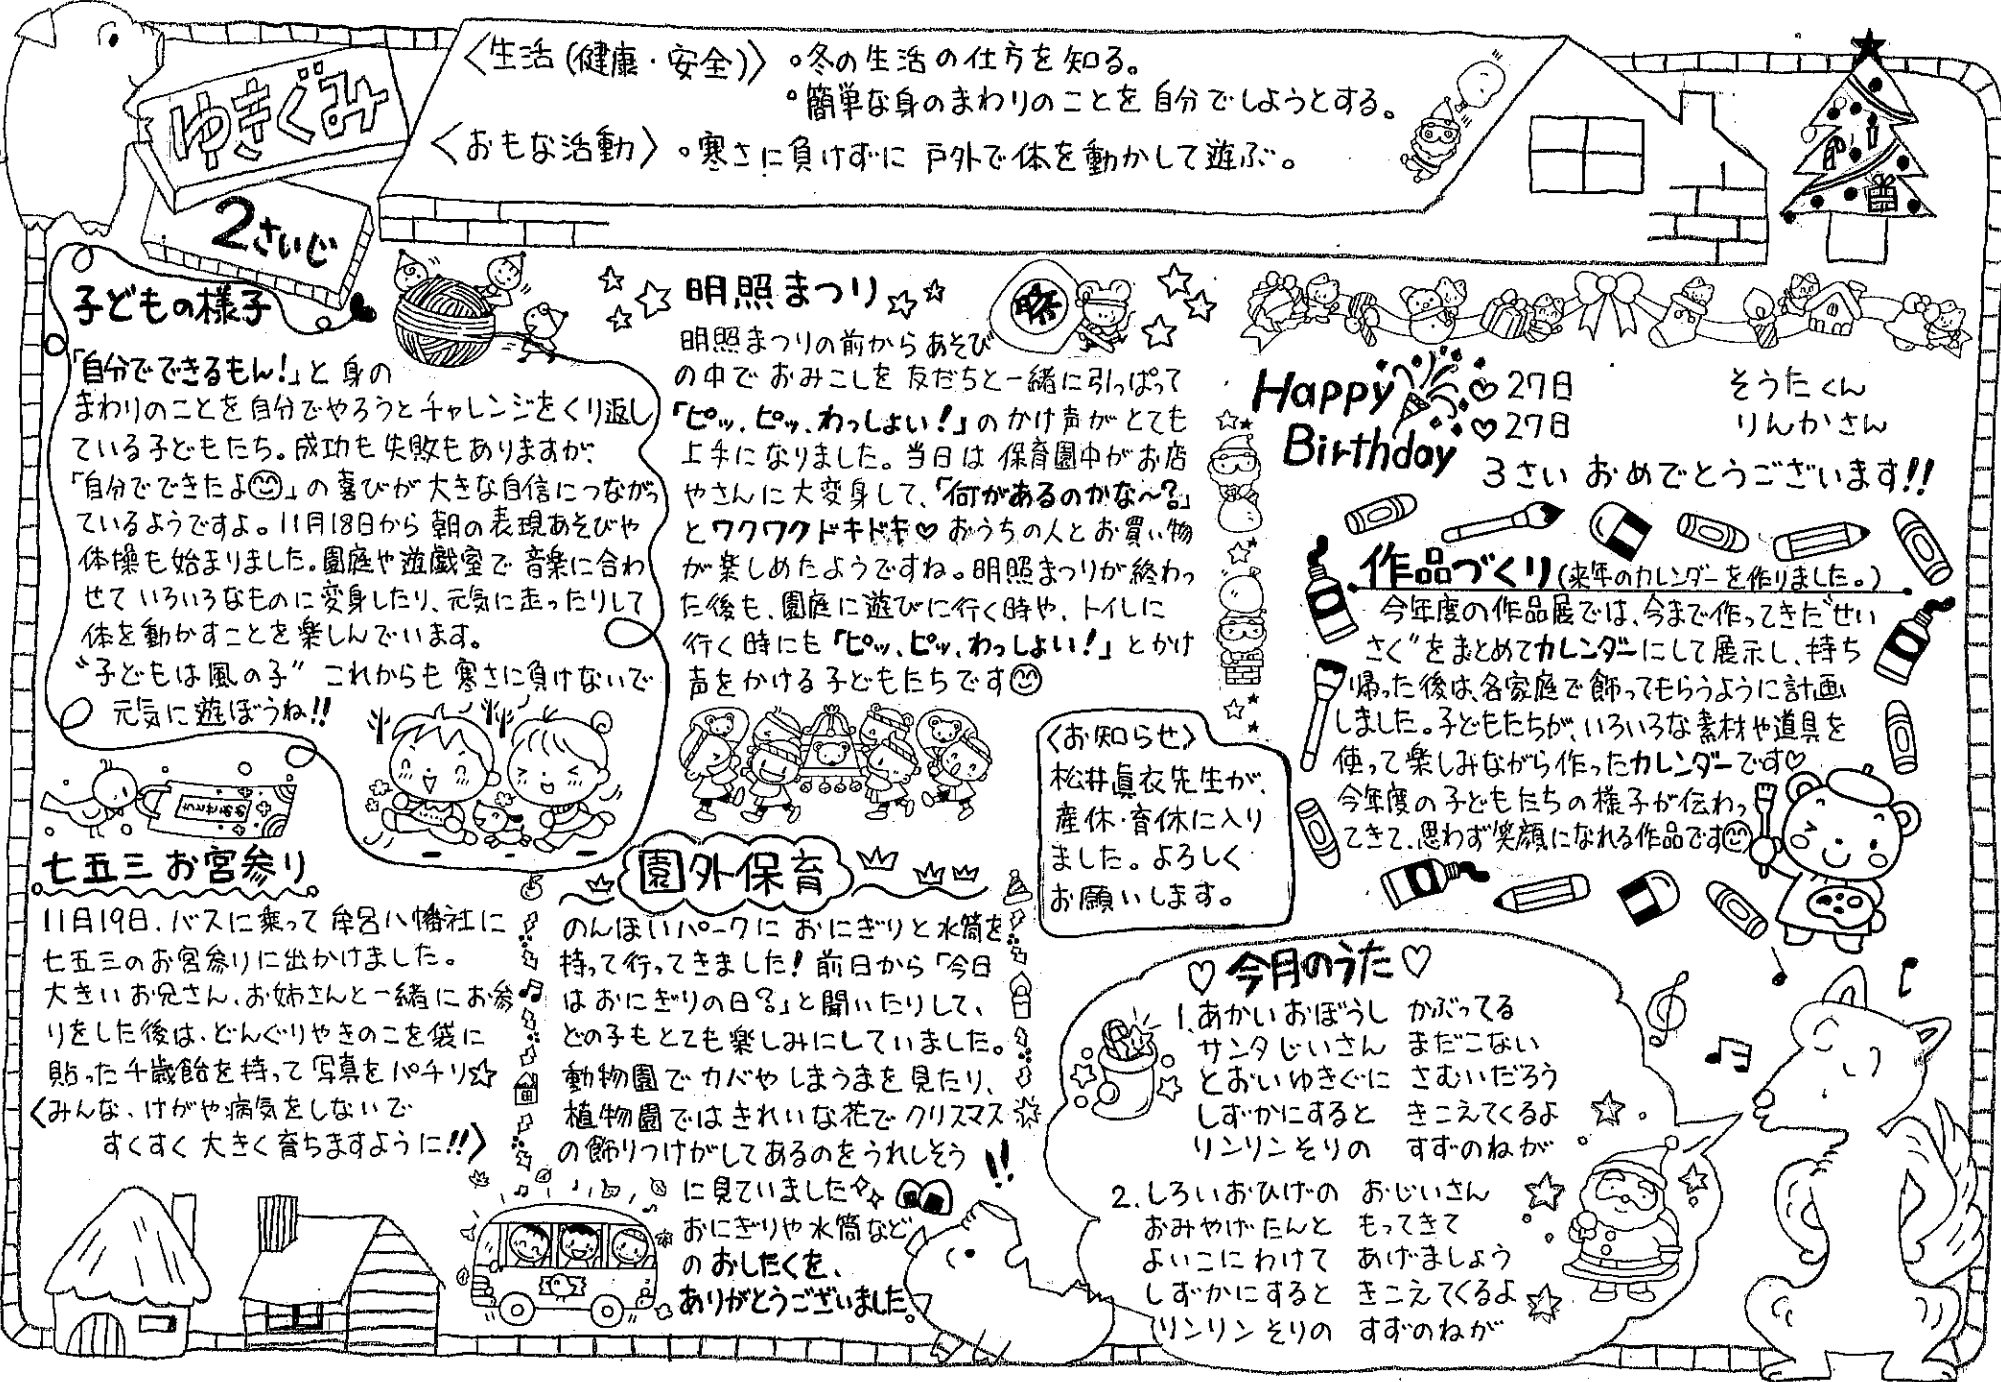 ゆきぐみ
2さいじ
〈生活(健康・安全)〉 ○冬の生活の仕方を知る。
○簡単な身のまわりのことを自分でしようとする。
〈おもな活動〉 ○寒さに負けずに戸外で体を動かして遊ぶ。
子どもの様子
「自分でできるもん!」と身の
まわりのことを自分でやろうとチャレンジをくり返し
ている子どもたち。成功も失敗もありますが、
「自分でできたよ😊」の喜びが大きな自信につながっ
ているようですよ。11月18日から朝の表現あそびや
体操も始まりました。園庭や遊戯室で音楽に合わ
せていろいろなものに変身したり、元気に走ったりして
体を動かすことを楽しんでいます。
“子どもは風の子” これからも寒さに負けないで
元気に遊ぼうね!!
七五三お宮参り
11月19日、バスに乗って牟呂八幡社に
七五三のお宮参りに出かけました。
大きいお兄さん、お姉さんと一緒にお参
りをした後は、どんぐりやきのこを袋に
貼った千歳飴を持って写真をパチリ☆
〈みんな、けがや病気をしないで
すくすく大きく育ちますように!!〉
明照まつり
祭
明照まつりの前からあそび
の中でおみこしを友だちと一緒に引っぱって
「ピッ、ピッ、わっしょい!」のかけ声がとても
上手になりました。当日は保育園中がお店
やさんに大変身して、「何があるのかな〜?」
とワクワクドキドキ♡おうちの人とお買い物
が楽しめたようですね。明照まつりが終わっ
た後も、園庭に遊びに行く時や、トイレに
行く時にも「ピッ、ピッ、わっしょい!」とかけ
声をかける子どもたちです😊
園外保育
のんほいパークにおにぎりと水筒を
持って行ってきました!前日から「今日
はおにぎりの日?」と聞いたりして、
どの子もとても楽しみにしていました。
動物園でカバやしまうまを見たり、
植物園ではきれいな花でクリスマス
の飾りつけがしてあるのをうれしそう
に見ていました
おにぎりや水筒など
のおしたくを、
ありがとうございました。
!!
〈お知らせ〉
松井眞衣先生が、
産休・育休に入り
ました。よろしく
お願いします。
Happy Birthday
♡27日 そうたくん
♡27日 りんかさん
3さいおめでとうございます!!
作品づくり(来年のカレンダーを作りました。)
今年度の作品展では、今まで作ってきた“せい
さく”をまとめてカレンダーにして展示し、持ち
帰った後は、各家庭で飾ってもらうように計画
しました。子どもたちが、いろいろな素材や道具を
使って楽しみながら作ったカレンダーです♡
今年度の子どもたちの様子が伝わっ
てきて、思わず笑顔になれる作品です😊
♡今月のうた♡
1. あかいおぼうし かぶってる
サンタじいさん まだこない
とおいゆきぐに さむいだろう
しずかにすると きこえてくるよ
リンリンそりの すずのねが
2. しろいおひげの おじいさん
おみやげたんと もってきて
よいこにわけて あげましょう
しずかにすると きこえてくるよ
リンリンそりの すずのねが